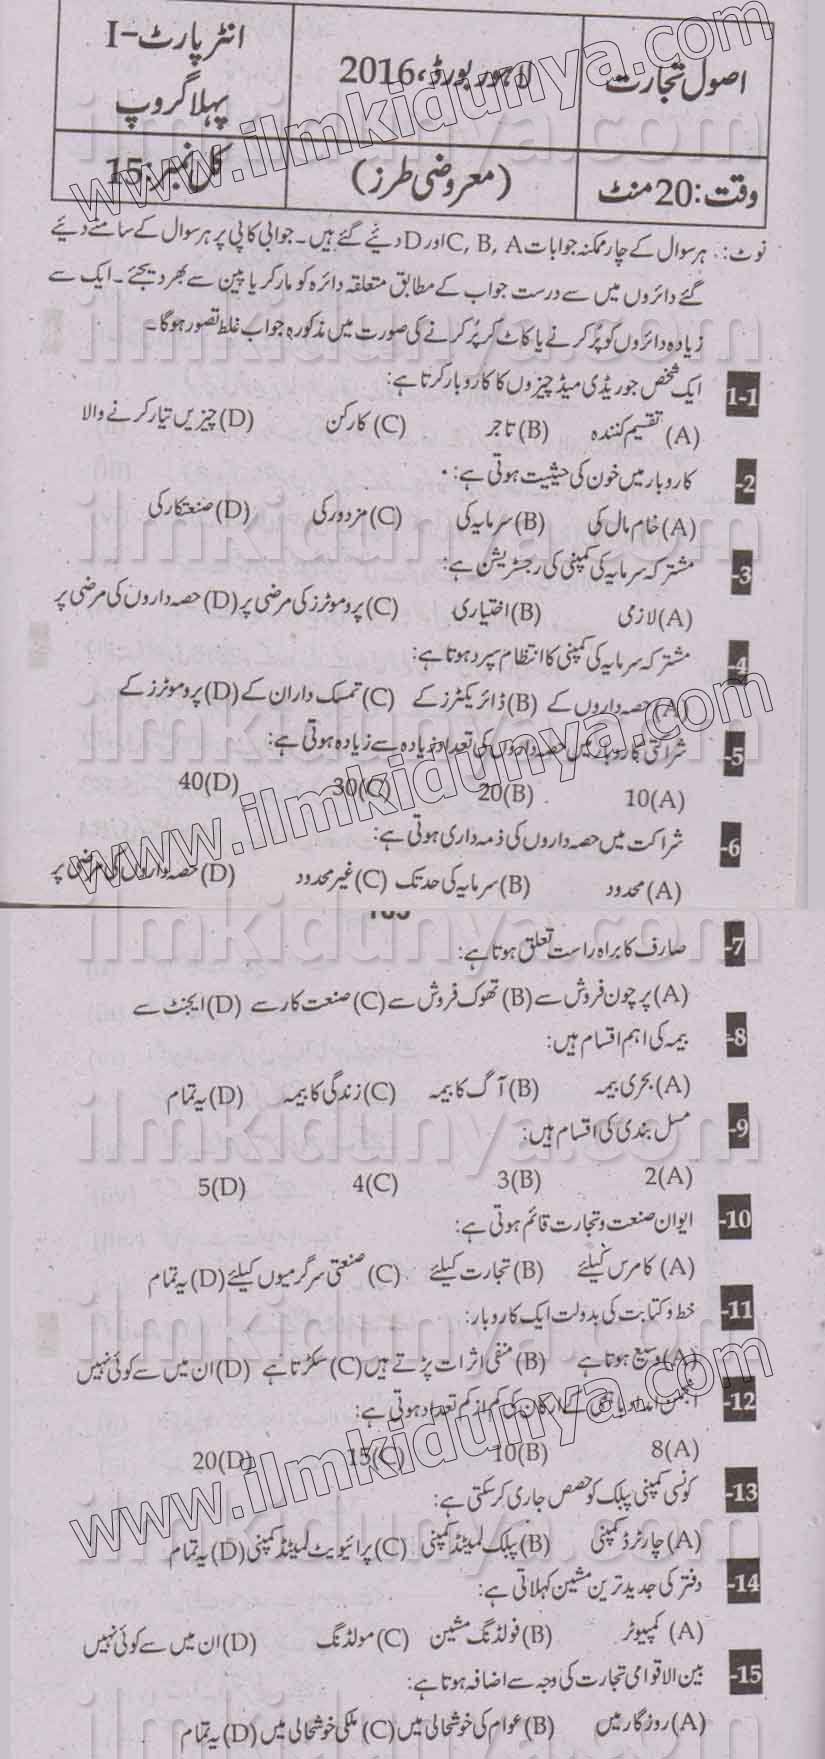 اصول تجارت
لاہور بورڈ، 2016
انٹر پارٹ-I
پہلا گروپ
وقت: 20 منٹ
(معروضی طرز)
کل نمبر: 15
نوٹ: ہر سوال کے چار ممکنہ جوابات C, B, A اور D دیئے گئے ہیں۔ جوابی کاپی پر ہر سوال کے سامنے دیئے
گئے دائروں میں سے درست جواب کے مطابق متعلقہ دائرہ کو مارکر یا پین سے بھر دیجئے۔ ایک سے
زیادہ دائروں کو پُر کرنے یا کاٹ کر پُر کرنے کی صورت میں مذکورہ جواب غلط تصور ہوگا۔
1-1 ایک شخص جو ریڈی میڈ چیزوں کا کاروبار کرتا ہے:
(A) تقسیم کنندہ (B) تاجر (C) کارکن (D) چیزیں تیار کرنے والا
-2 کاروبار میں خون کی حیثیت ہوتی ہے:
(A) خام مال کی (B) سرمایہ کی (C) مزدور کی (D) صنعتکار کی
-3 مشترکہ سرمایہ کی کمپنی کی رجسٹریشن ہے:
(A) لازمی (B) اختیاری (C) پروموٹرز کی مرضی پر (D) حصہ داروں کی مرضی پر
-4 مشترکہ سرمایہ کی کمپنی کا انتظام سپرد ہوتا ہے:
(A) حصہ داروں کے (B) ڈائریکٹرز کے (C) تمسک داران کے (D) پروموٹرز کے
-5 شراکتی کاروبار میں حصہ داروں کی تعداد زیادہ سے زیادہ ہوتی ہے:
10(A) 20(B) 30(C) 40(D)
-6 شراکت میں حصہ داروں کی ذمہ داری ہوتی ہے:
(A) محدود (B) سرمایہ کی حد تک (C) غیر محدود (D) حصہ داروں کی مرضی پر
-7 صارف کا براہ راست تعلق ہوتا ہے:
(A) پرچون فروش سے (B) تھوک فروش سے (C) صنعت کار سے (D) ایجنٹ سے
-8 بیمہ کی اہم اقسام ہیں:
(A) بحری بیمہ (B) آگ کا بیمہ (C) زندگی کا بیمہ (D) یہ تمام
-9 مسل بندی کی اقسام ہیں:
2(A) 3(B) 4(C) 5(D)
-10 ایوان صنعت و تجارت قائم ہوتی ہے:
(A) کامرس کیلئے (B) تجارت کیلئے (C) صنعتی سرگرمیوں کیلئے (D) یہ تمام
-11 خط و کتابت کی بدولت ایک کاروبار:
(A) وسیع ہوتا ہے (B) منفی اثرات پڑتے ہیں (C) سکڑتا ہے (D) ان میں سے کوئی نہیں
-12 انجمن امداد باہمی کے ارکان کی کم از کم تعداد ہوتی ہے:
8(A) 10(B) 15(C) 20(D)
-13 کونسی کمپنی پبلک کو حصص جاری کر سکتی ہے:
(A) چارٹرڈ کمپنی (B) پبلک لمیٹڈ کمپنی (C) پرائیویٹ لمیٹڈ کمپنی (D) یہ تمام
-14 دفتر کی جدید ترین مشین کہلاتی ہے:
(A) کمپیوٹر (B) فولڈنگ مشین (C) مولڈنگ (D) ان میں سے کوئی نہیں
-15 بین الاقوامی تجارت کی وجہ سے اضافہ ہوتا ہے:
(A) روزگار میں (B) عوام کی خوشحالی میں (C) ملکی خوشحالی میں (D) یہ تمام
www.ilmkidunya.com
ilmkidunya.com